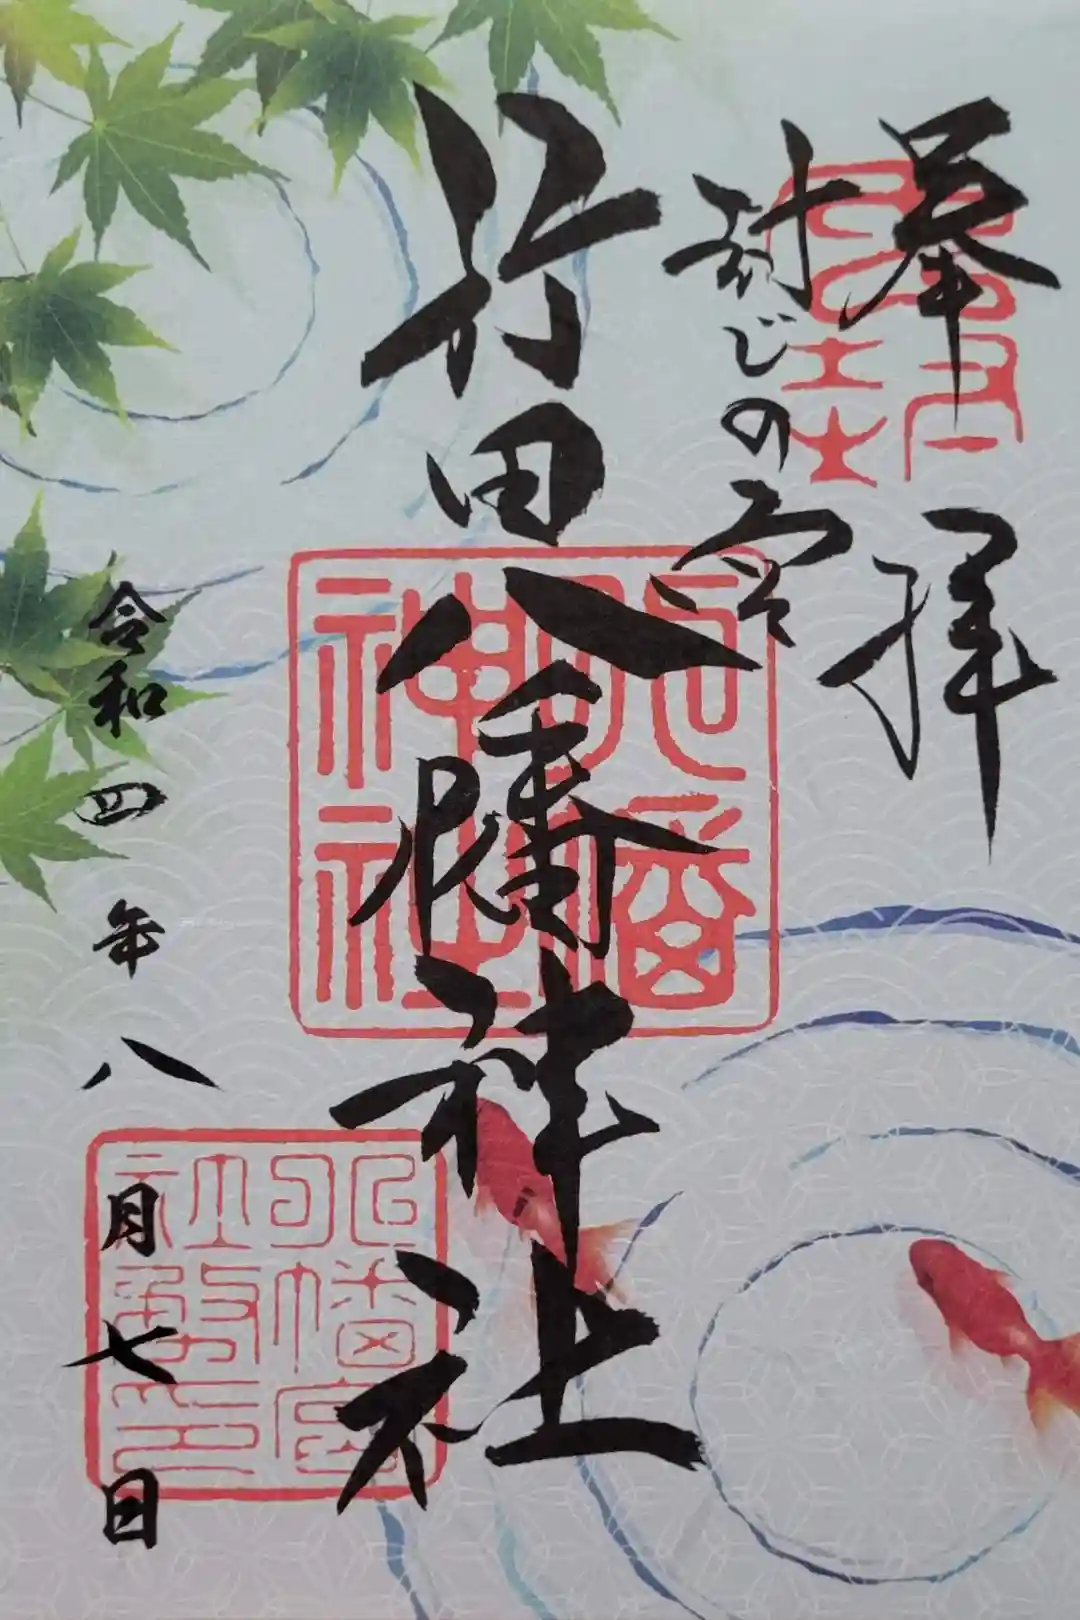 奉拝
封じの宮
行田八幡神社
八幡
神社
令和四年八月七日